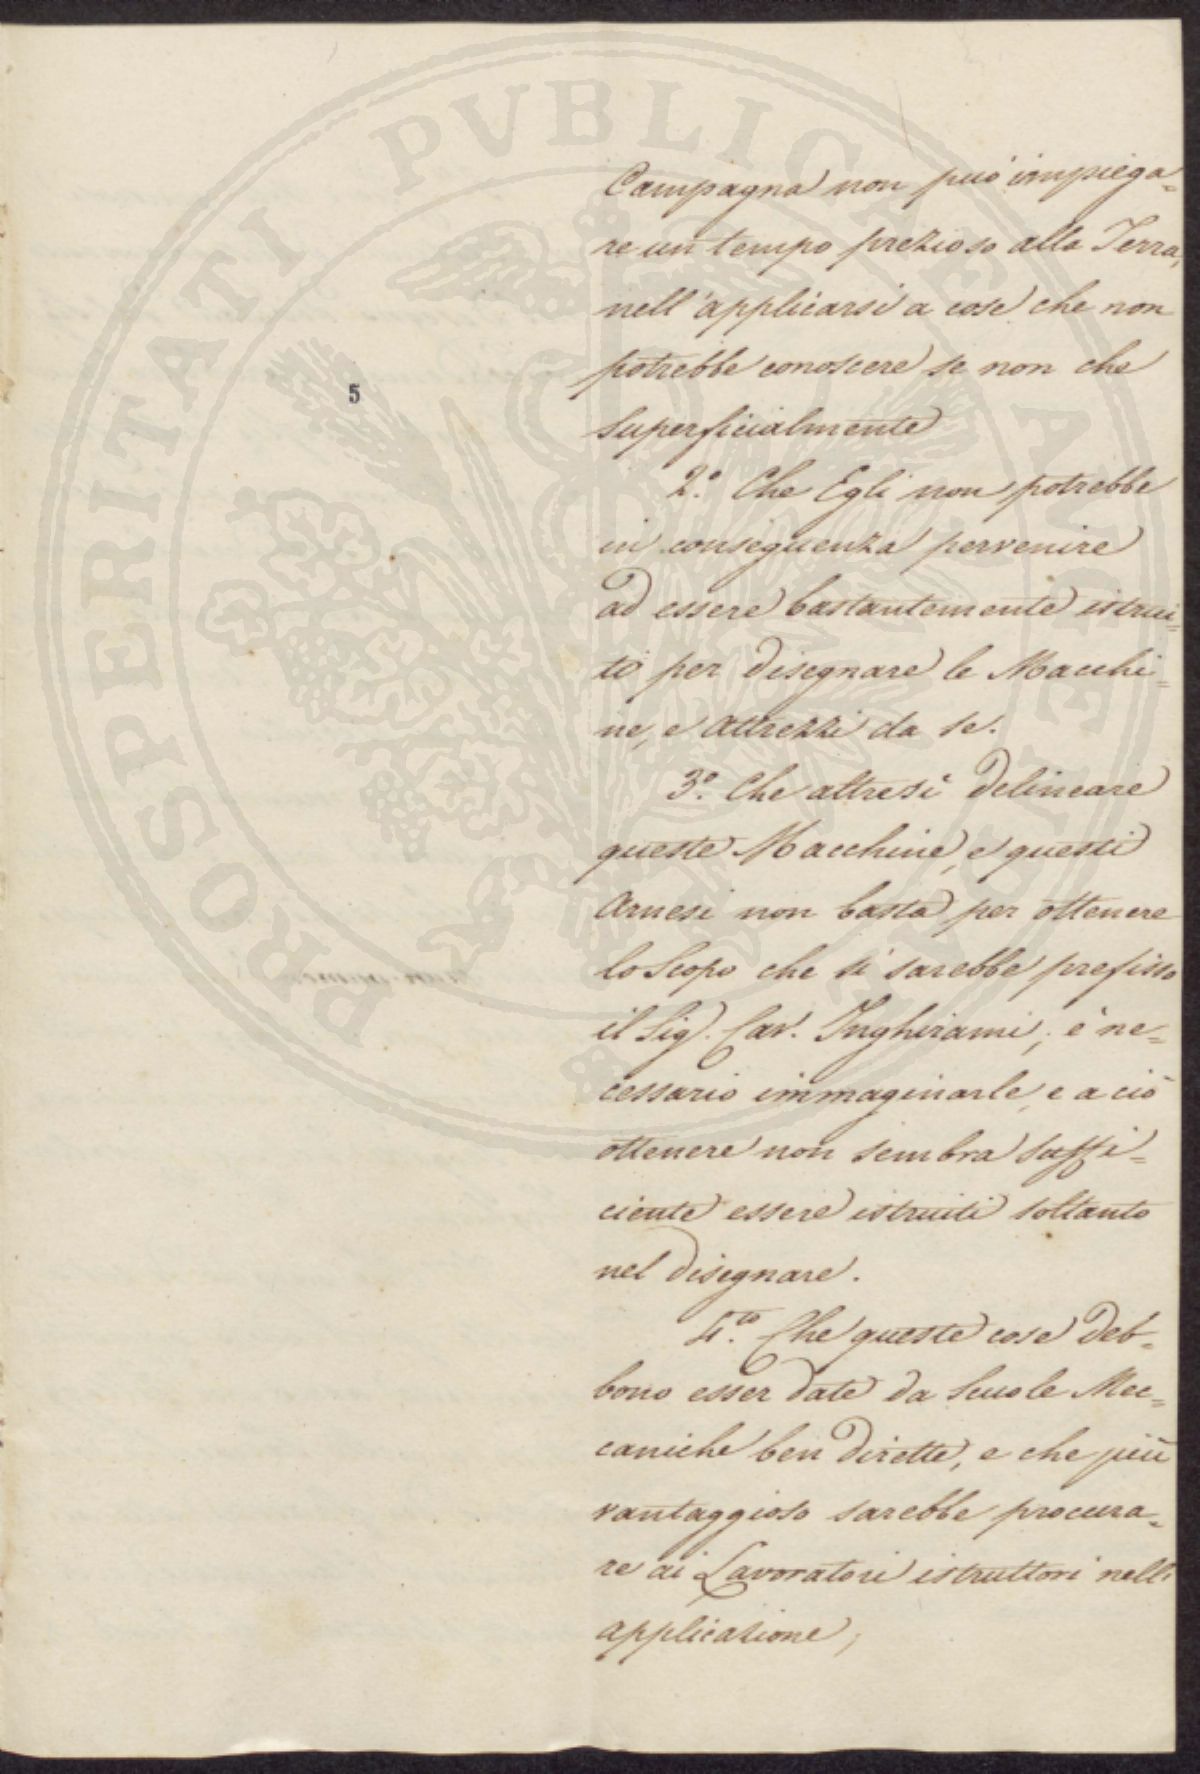 PROSPERITATI PVBLICAE AVGENDAE
5
Campagna non può impiega=
re un tempo prezioso alla Terra,
nell'applicarsi a cose che non
potrebbe conoscere se non che
superficialmente
2.° Che Egli non potrebbe
in conseguenza pervenire
ad essere bastantemente istrui=
to per disegnare le Macchi=
ne, e attrezzi da se.
3.° Che altresì delineare
queste Macchine, e questi
Arnesi non basta per ottenere
lo Scopo che si sarebbe prefisso
il Sig. Cav. Inghirami; è ne=
cessario immaginarle, e a ciò
ottenere non sembra suffi=
ciente essere istruiti soltanto
nel disegnare.
4.to Che queste cose deb=
bono esser date da Scuole Mec=
caniche ben dirette, e che più
vantaggioso sarebbe procura=
re ai Lavoratori istruttori nell'
applicazione;